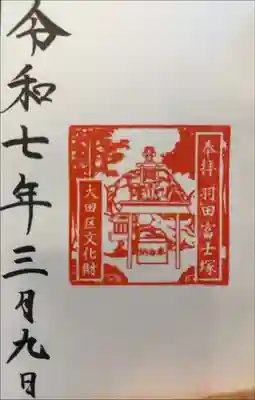 奉拝 羽田富士塚
大田区文化財
令和七年三月九日